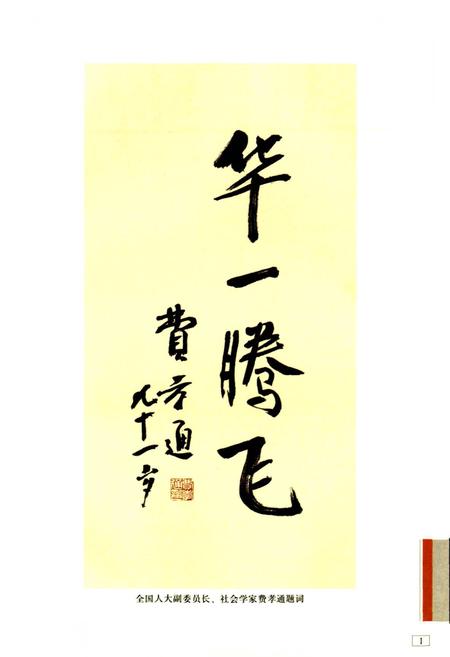 华一腾飞
费孝通
九十一岁
全国人大副委员长、社会学家费孝通题词
1